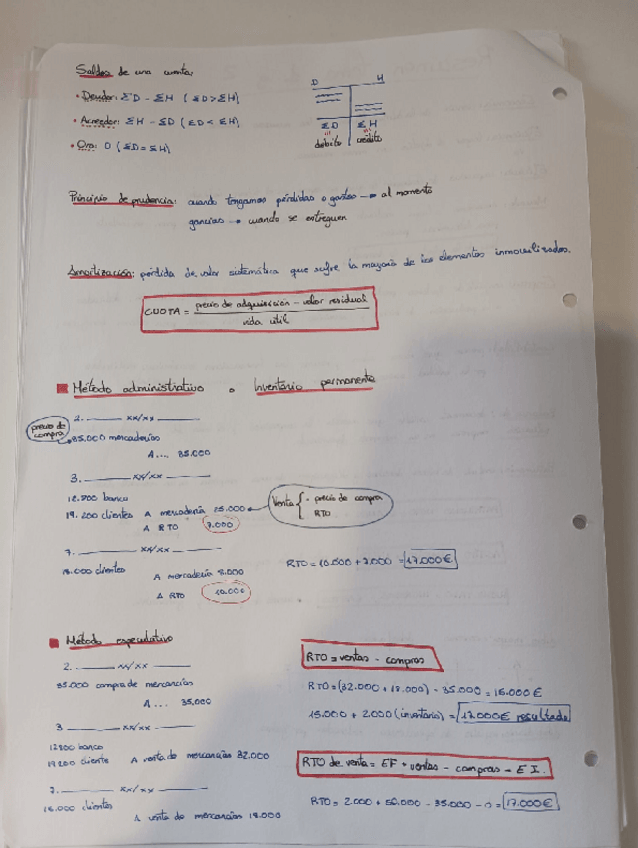 Saldos de una cuenta:
• Deudor: ΣD - ΣH (ΣD > ΣH)
• Acreedor: ΣH - ΣD (ΣD < ΣH)
• Cero: 0 (ΣD = ΣH)
D H
ΣD ΣH
débito crédito
Principio de prudencia: cuando tengamos pérdidas o gastos → al momento
ganancias → cuando se entreguen
Amortización: pérdida de valor sistemática que sufre la mayoría de los elementos inmovilizados.
CUOTA = precio de adquisición - valor residual
vida útil
Método administrativo o Inventario permanente
2. xx/xx
precio de compra
35.000 mercaderías
A ... 35.000
3. xx/xx
12.800 banco
19.200 clientes A mercadería 25.000
A RTO 7.000
Venta { - precio de compra
RTO
7. xx/xx
18.000 clientes
A mercadería 8.000
A RTO 10.000
RTO = 10.000 + 7.000 = 17.000€
Método especulativo
2. xx/xx
35.000 compra de mercancías
A ... 35.000
3 xx/xx
12800 banco
19200 cliente A venta de mercancías 32.000
7. xx/xx
clientes
A venta de mercancías 18.000
RTO = ventas - compras
RTO = (32.000 + 18.000) - 35.000 = 15.000€
15.000 + 2.000 (inventario) = 17.000€ resultado
RTO de venta = EF + ventas - compras - EI.
RTO = 2.000 + 50.000 - 35.000 - 0 = 17.000€